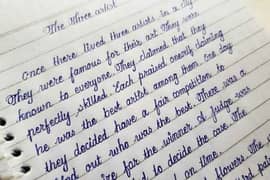 The Three artist
Once there lived three artists in a city.
They were famous for their art. They were
known to everyone. They claimed that they
perfectly skilled. Each praised nearly claiming
he was the best artist among them. One day
they decided have a fair competition to
out who was the best. There was a
for the winner. A judge was
to decide the case. The
on time.
flowers. The